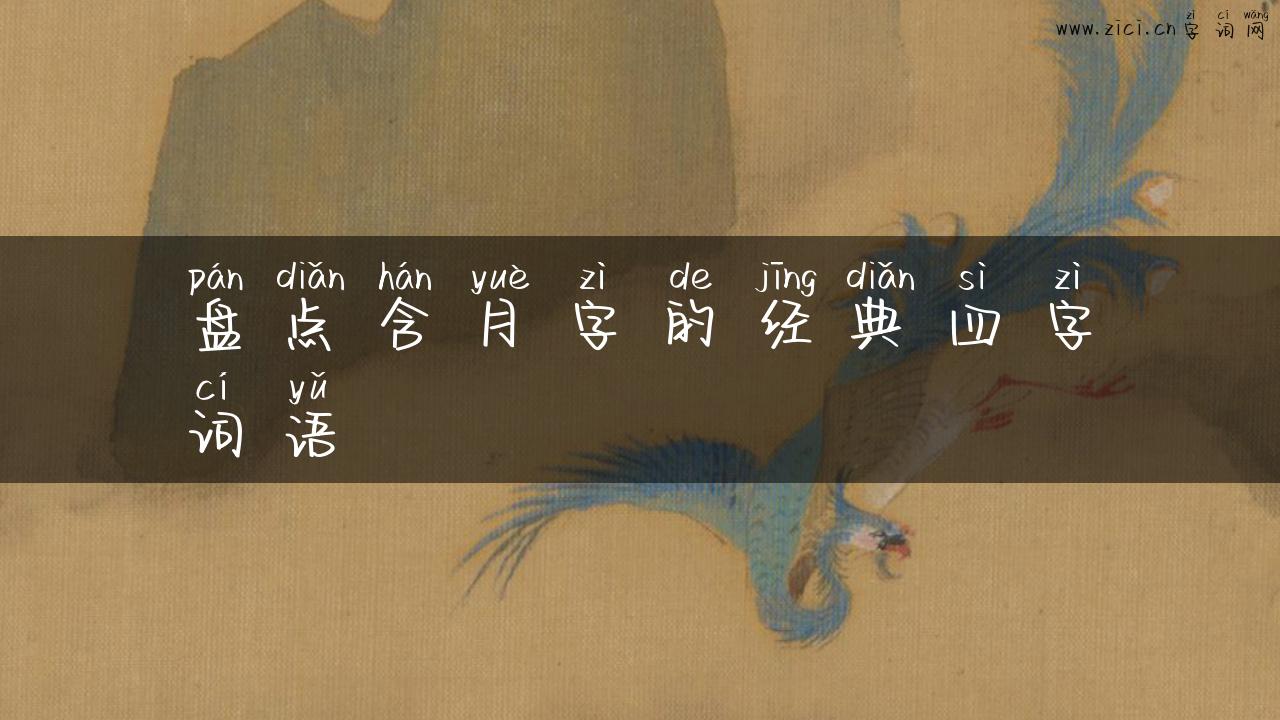 www.zici.cn zì cí wǎng
字词网
pán diǎn hán yuè zì de jīng diǎn sì zì
盘点含月字的经典四字
cí yǔ
词语